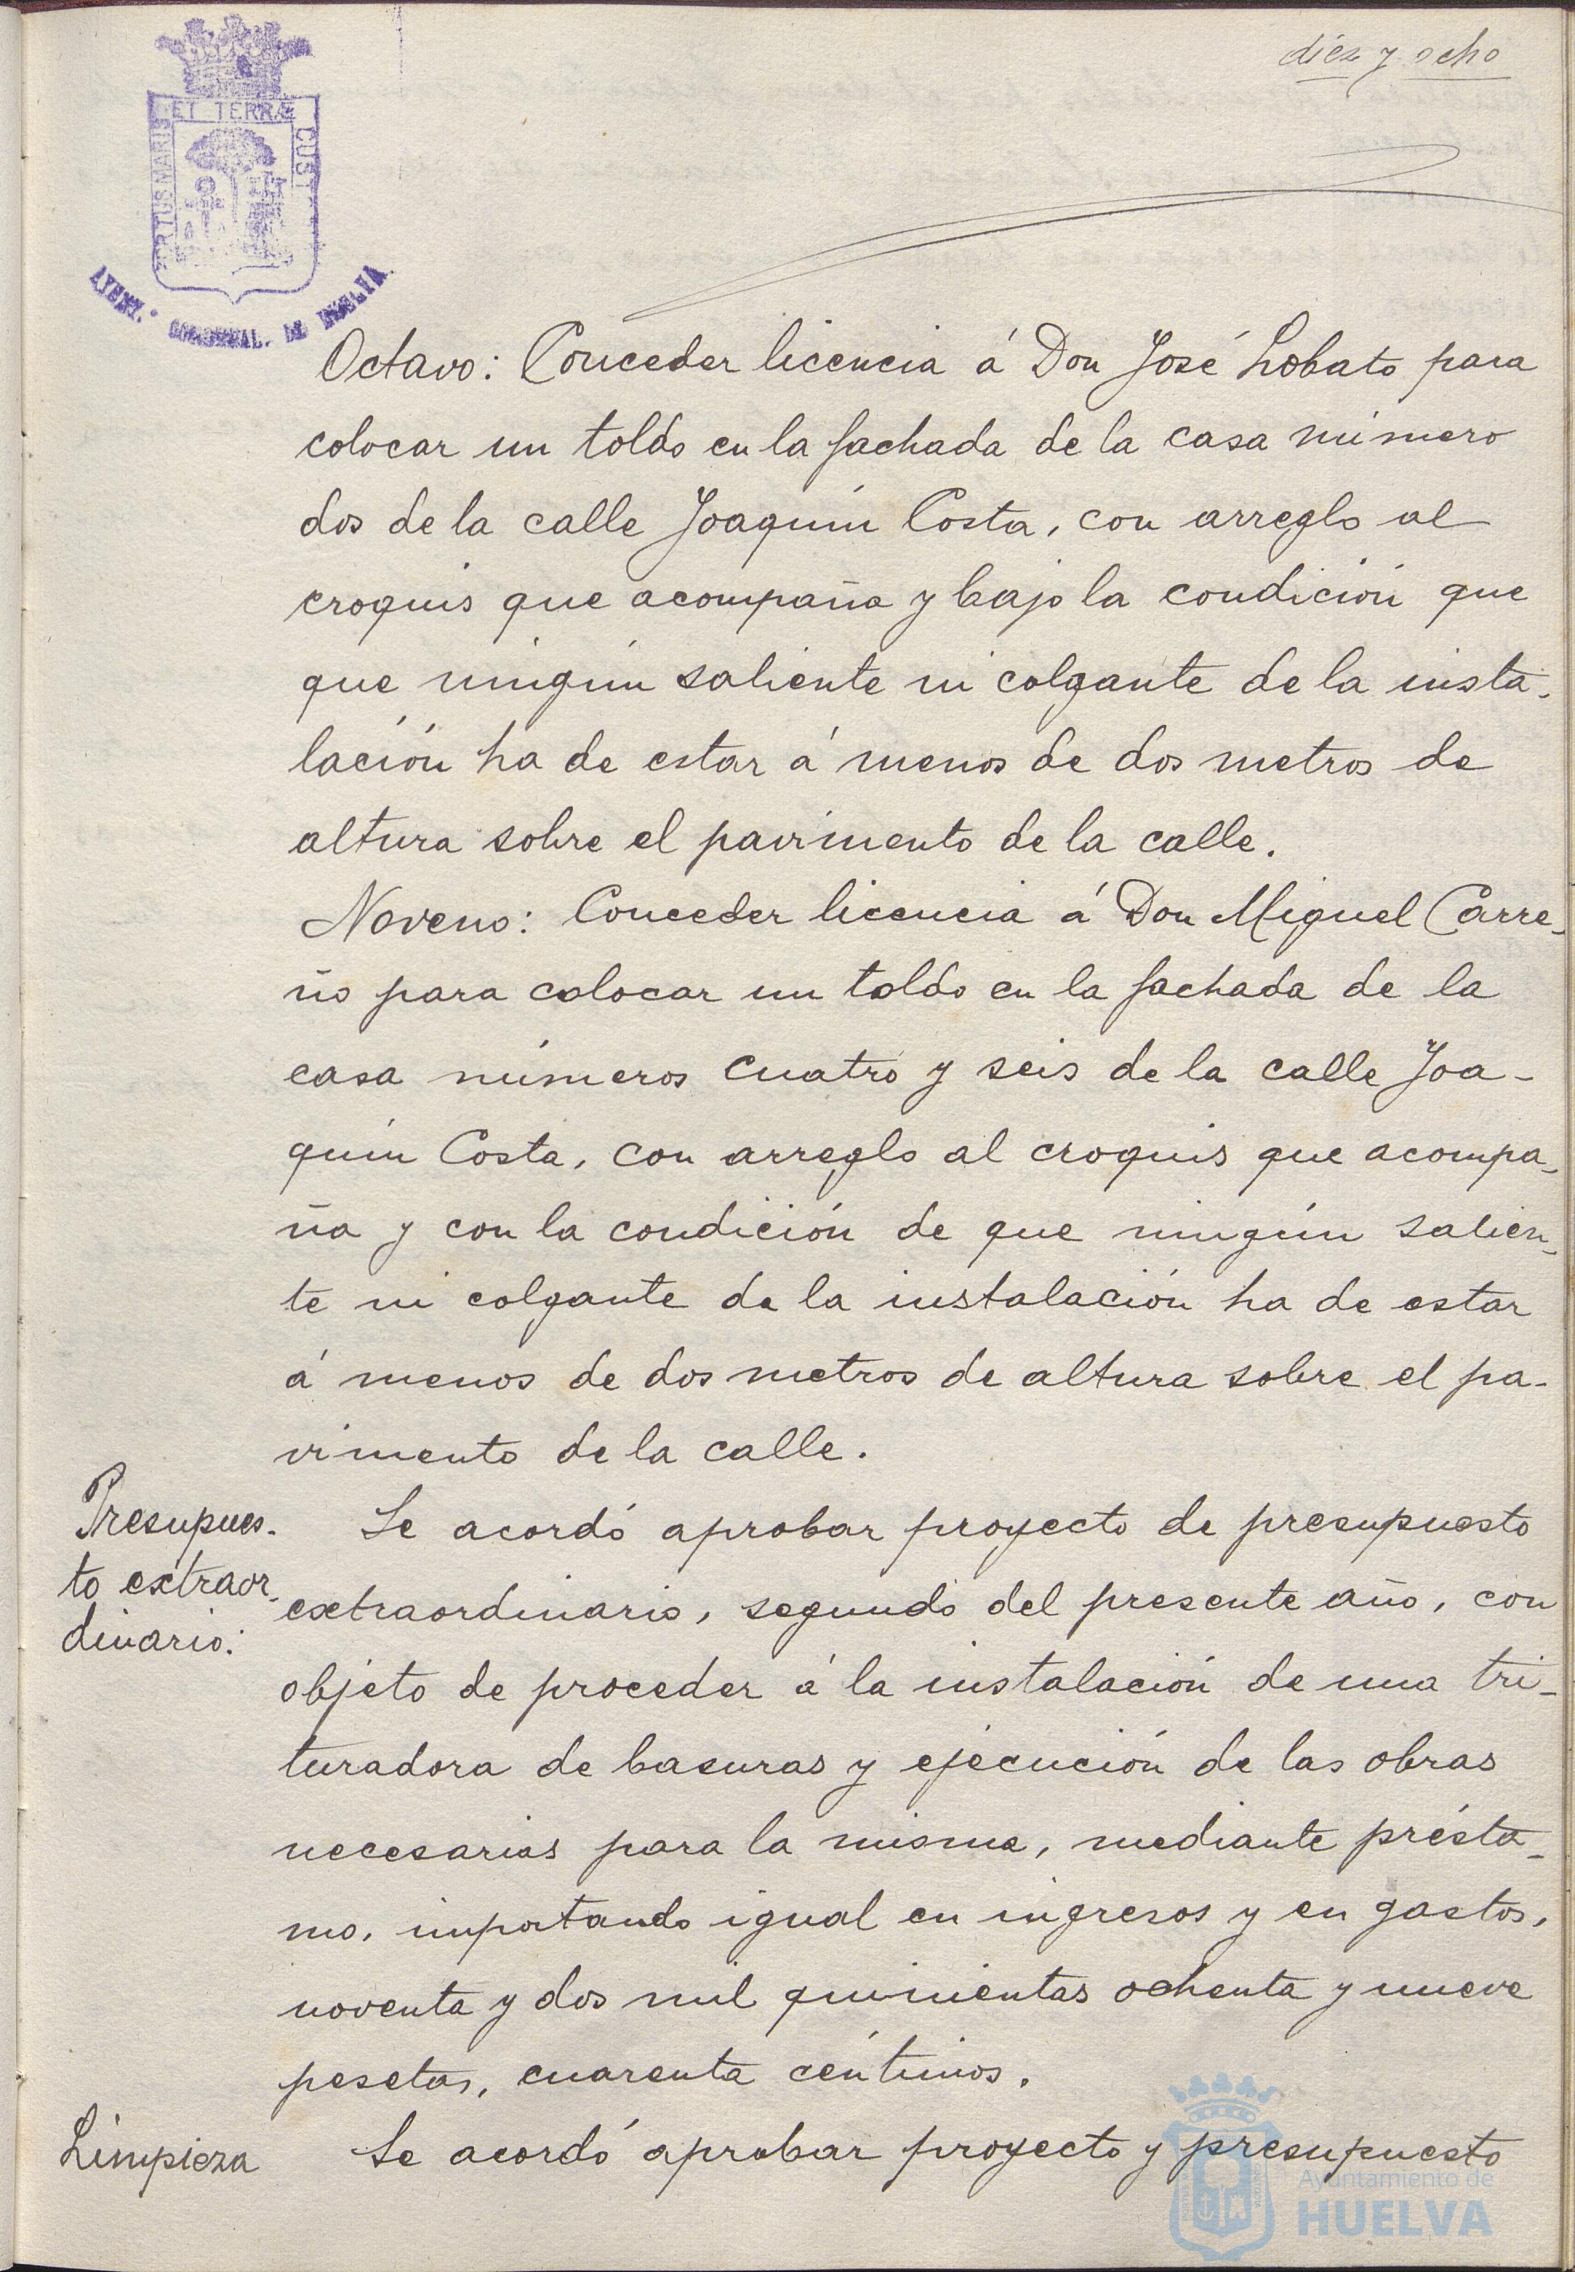 diez y ocho
ET TERRÆ
CUST
AYUNT.º CONSTNAL. DE HUELVA
Octavo: Conceder licencia á Don José Lobato para
colocar un toldo en la fachada de la casa número
dos de la calle Joaquín Costa, con arreglo al
croquis que acompaña y bajo la condición que
que ningún saliente ni colgante de la insta-
lación ha de estar á menos de dos metros de
altura sobre el pavimento de la calle.
Noveno: Conceder licencia á Don Miguel Carre-
ño para colocar un toldo en la fachada de la
casa números cuatro y seis de la calle Joa-
quín Costa, con arreglo al croquis que acompa-
ña y con la condición de que ningún salien-
te ni colgante de la instalación ha de estar
á menos de dos metros de altura sobre el pa-
vimento de la calle.
Presupues-
to extraor-
dinario:
Se acordó aprobar proyecto de presupuesto
extraordinario, segundo del presente año, con
objeto de proceder á la instalación de una tri-
turadora de basuras y ejecución de las obras
necesarias para la misma, mediante présta-
mo, importando igual en ingresos y en gastos,
noventa y dos mil quinientas ochenta y nueve
pesetas, cuarenta céntimos.
Limpieza
Se acordó aprobar proyecto y presupuesto
Ayuntamiento de
HUELVA